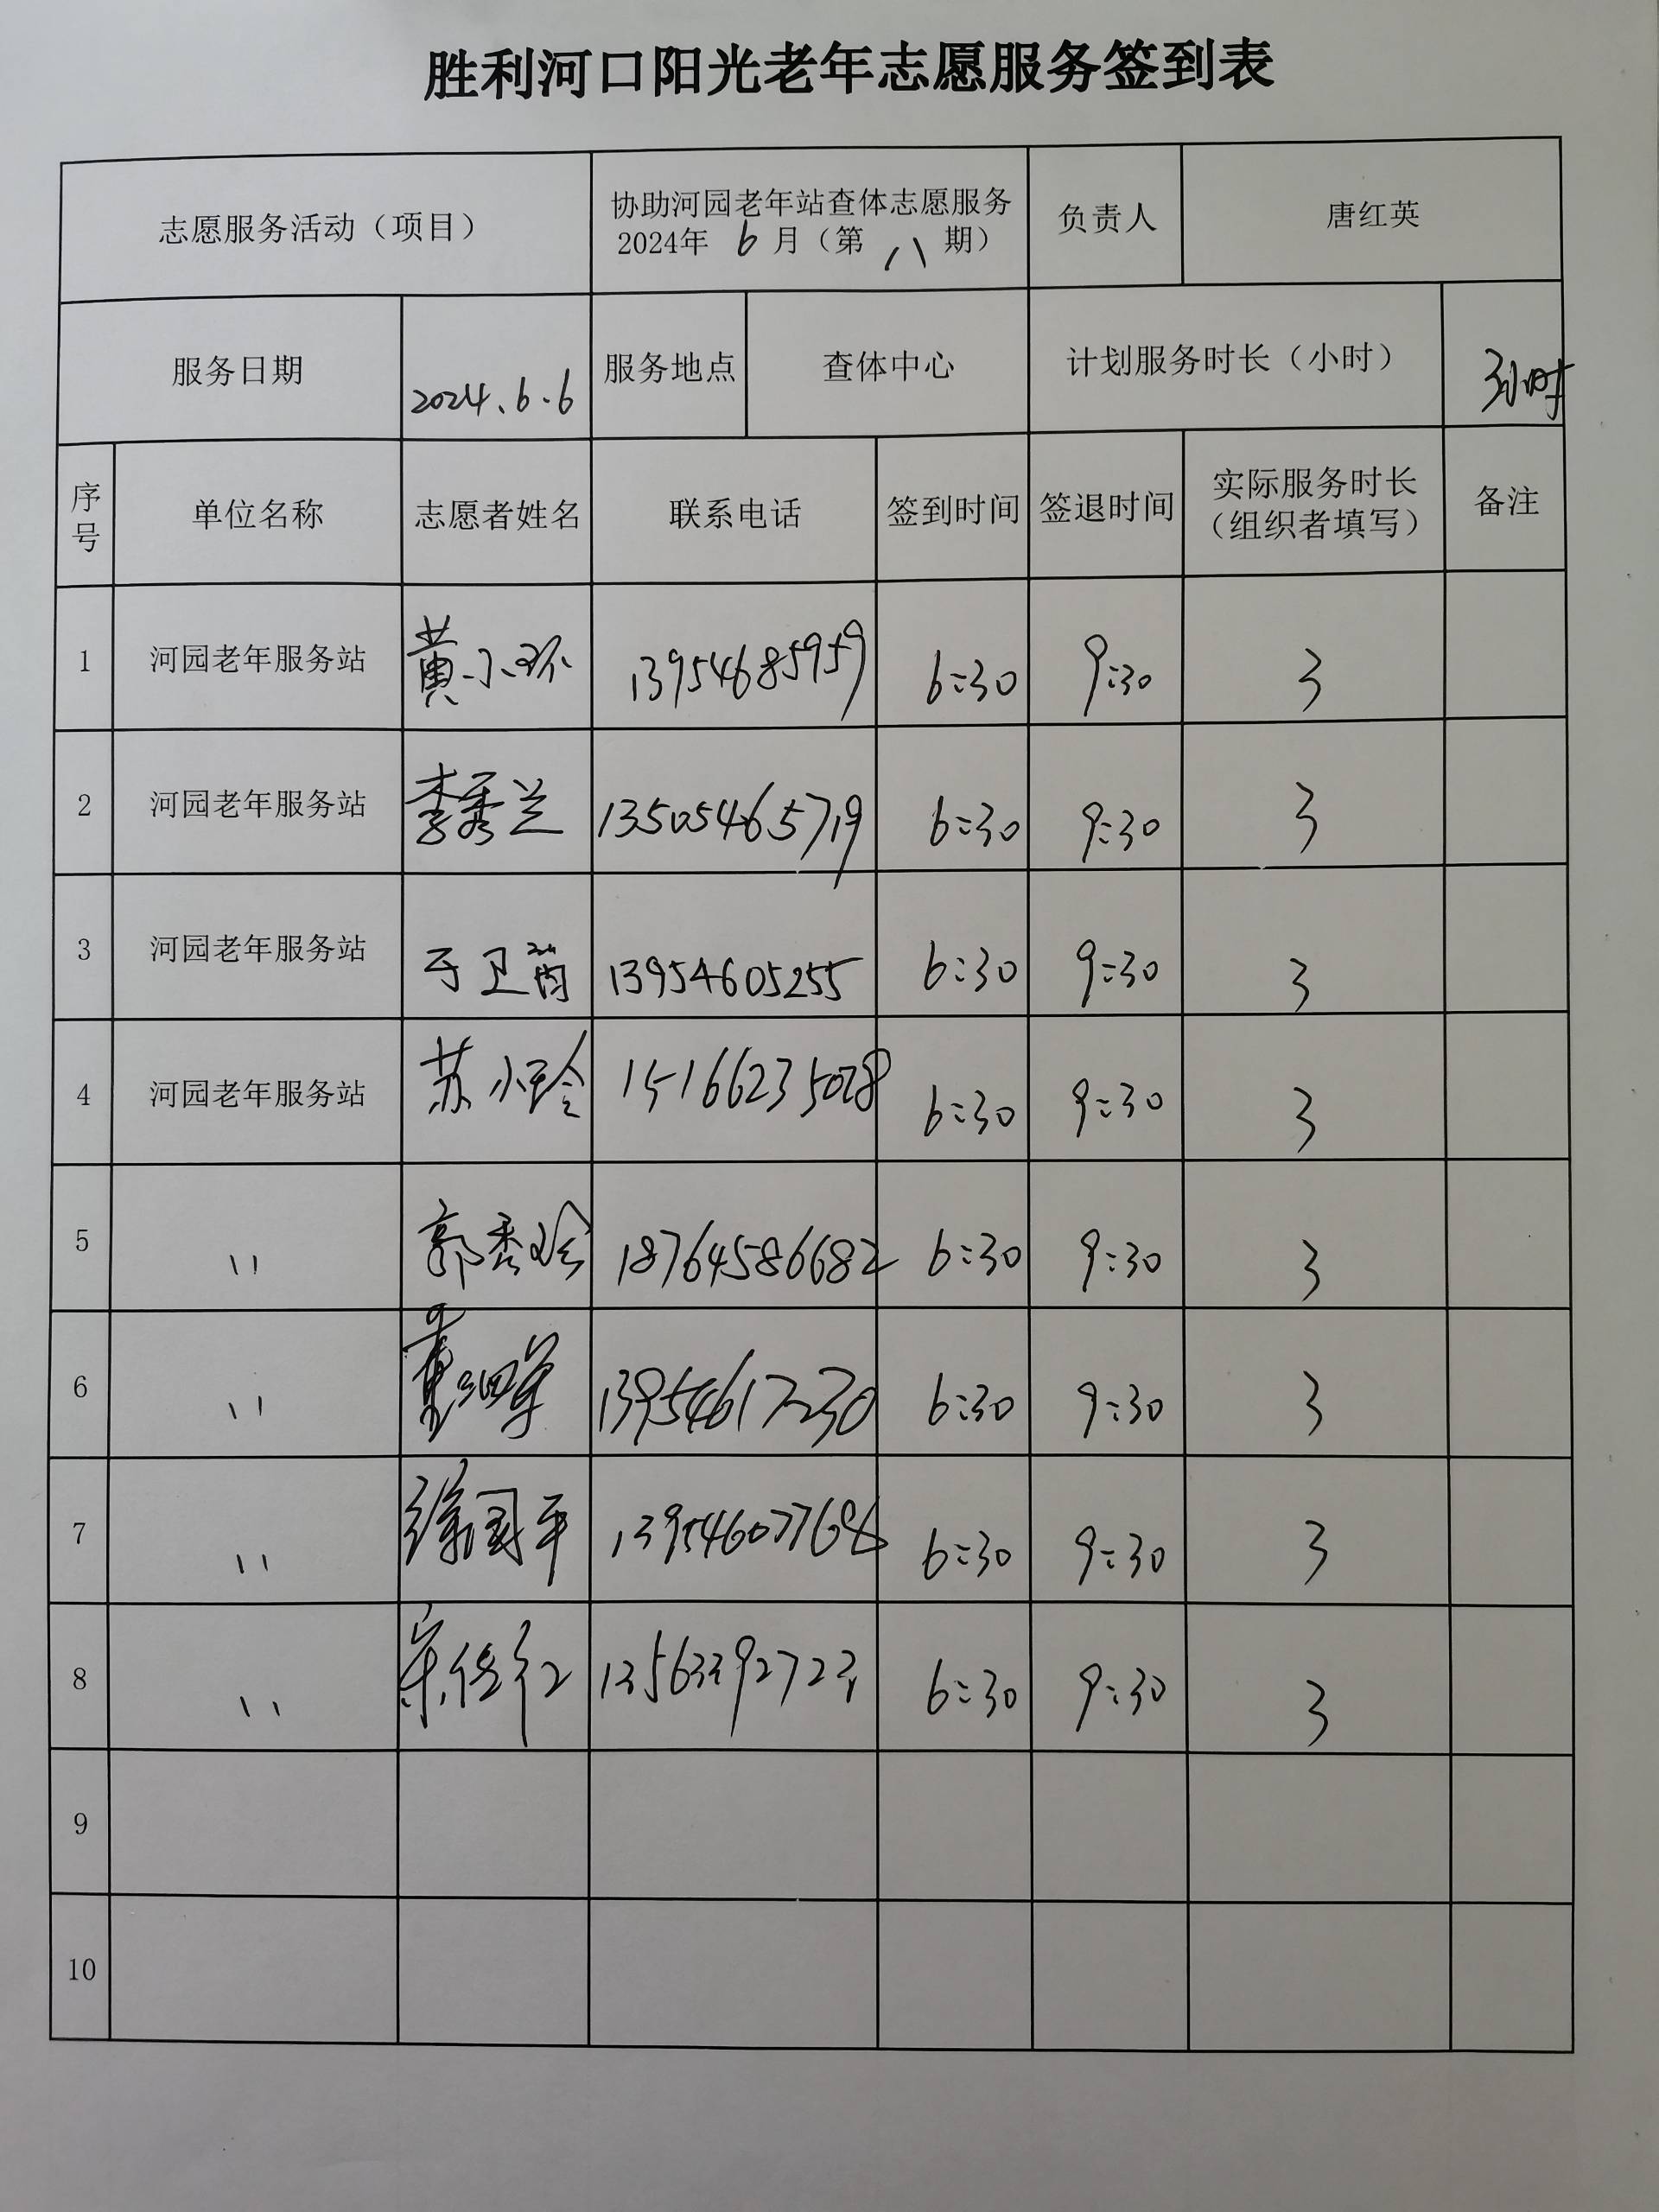 胜利河口阳光老年志愿服务签到表
志愿服务活动（项目） 协助河园老年站查体志愿服务 负责人 唐红英
2024年 6 月（第 八 期）
服务日期 2024.6.6 服务地点 查体中心 计划服务时长（小时） 3小时
序号 单位名称 志愿者姓名 联系电话 签到时间 签退时间 实际服务时长（组织者填写） 备注
1 河园老年服务站 黄小环 13954685959 6:30 9:30 3
2 河园老年服务站 李秀兰 13505465719 6:30 9:30 3
3 河园老年服务站 于卫茵 13954605255 6:30 9:30 3
4 河园老年服务站 苏小玲 15166235028 6:30 9:30 3
5 〃 郭秀玲 18764586682 6:30 9:30 3
6 〃 13954617230 6:30 9:30 3
7 〃 徐国平 6:30 9:30 3
8 〃 宋佳红 13563392723 6:30 9:30 3
9
10